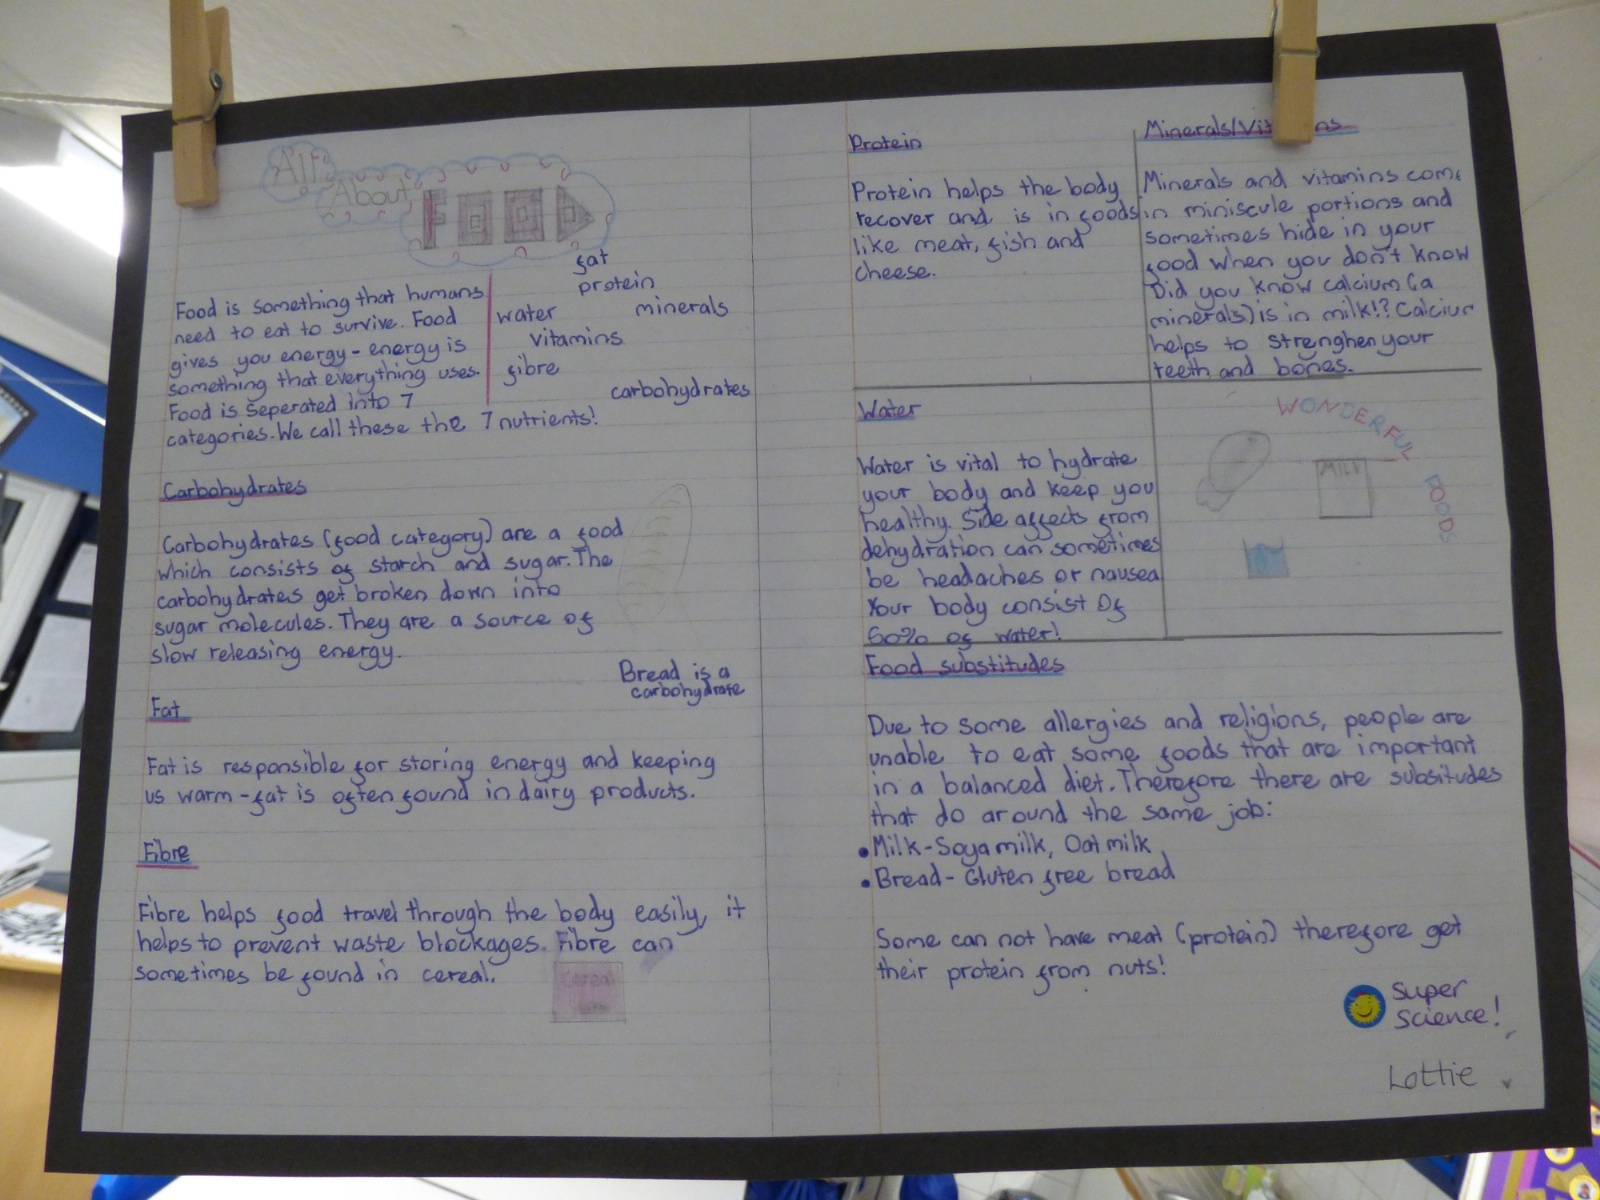 All
About FOOD
Food is something that humans
need to eat to survive. Food
gives you energy - energy is
something that everything uses.
Food is seperated into 7
categories. We call these the 7 nutrients!
fat
protein
water minerals
vitamins
fibre
carbohydrates
Carbohydrates
Carbohydrates (food category) are a food
which consists of starch and sugar. The
carbohydrates get broken down into
sugar molecules. They are a source of
slow releasing energy.
Bread is a
carbohydrate
Fat
Fat is responsible for storing energy and keeping
us warm - fat is often found in dairy products.
Fibre
Fibre helps food travel through the body easily, it
helps to prevent waste blockages. Fibre can
sometimes be found in cereal.
Cereal
Protein
Protein helps the body
recover and is in foods
like meat, fish and
cheese.
Minerals/
Minerals and vitamins come
in miniscule portions and
sometimes hide in your
food when you don't know
Did you know calcium (a
minerals) is in milk!? Calcium
helps to strenghen your
teeth and bones.
Water
Water is vital to hydrate
your body and keep you
healthy. Side affects from
dehydration can sometimes
be headaches or nausea
Your body consist Of
60% of water!
WONDERFUL
FOODS
MILK
Food substitudes
Due to some allergies and religions, people are
unable to eat some foods that are important
in a balanced diet. Therefore there are subsitudes
that do around the same job:
• Milk - Soya milk, Oat milk
• Bread - Gluten free bread
Some can not have meat (protein) therefore get
their protein from nuts!
Super
Science!
Lottie